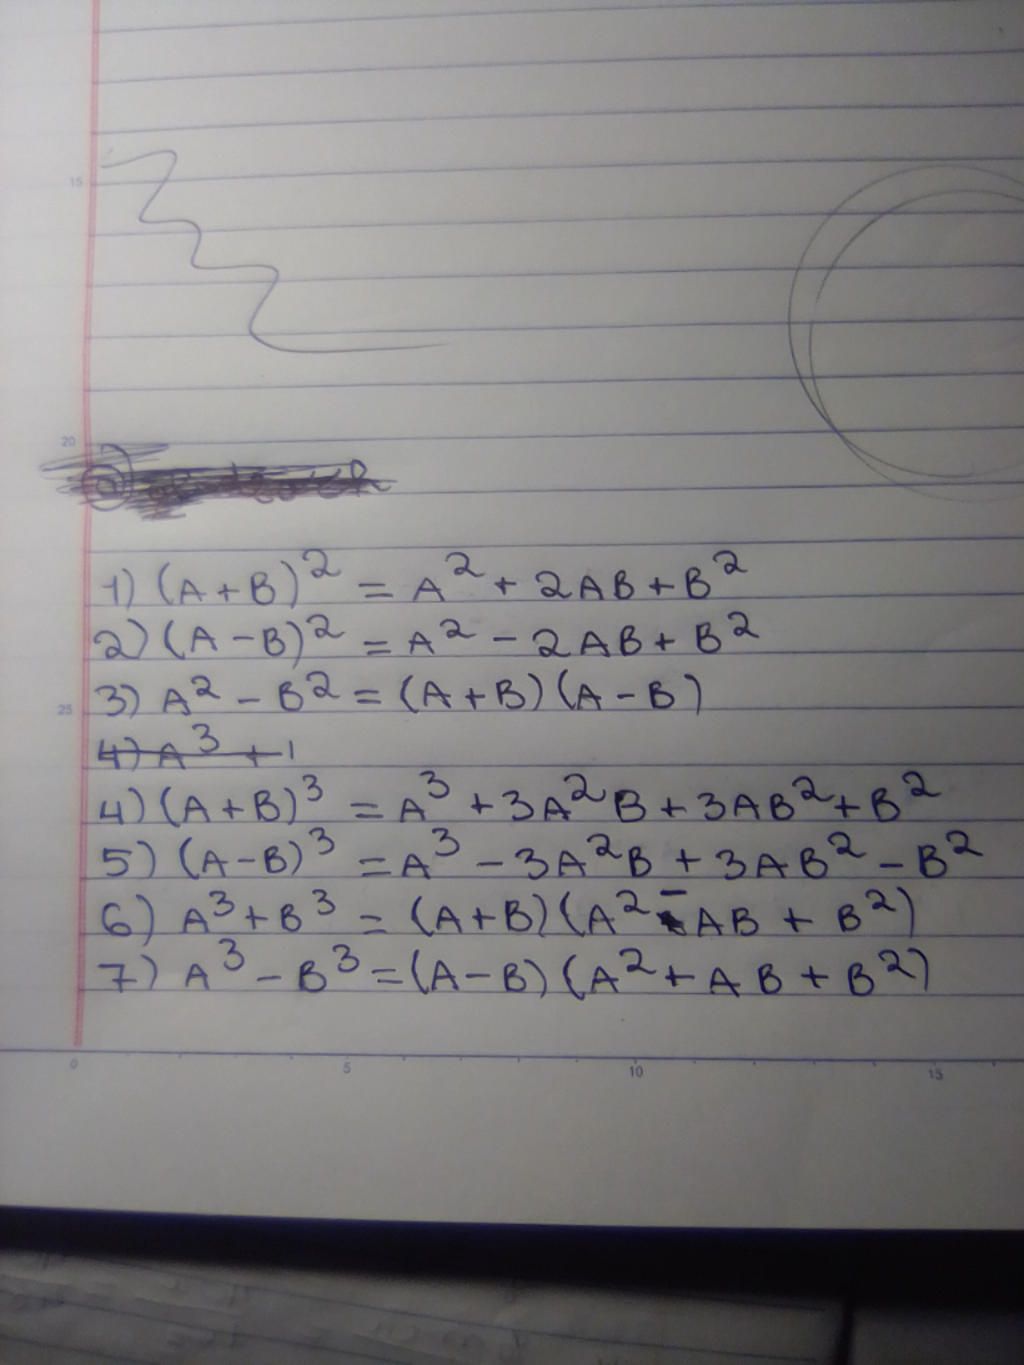 15
20
1) (A+B)² = A² + 2AB + B²
2) (A-B)² = A² - 2AB + B²
25
3) A² - B² = (A+B)(A-B)
4) A³ +
4) (A+B)³ = A³ + 3A²B + 3AB² + B²
5) (A-B)³ = A³ - 3A²B + 3AB² - B²
6) A³ + B³ = (A+B)(A² - AB + B²)
7) A³ - B³ = (A-B)(A² + AB + B²)
0 5 10 15